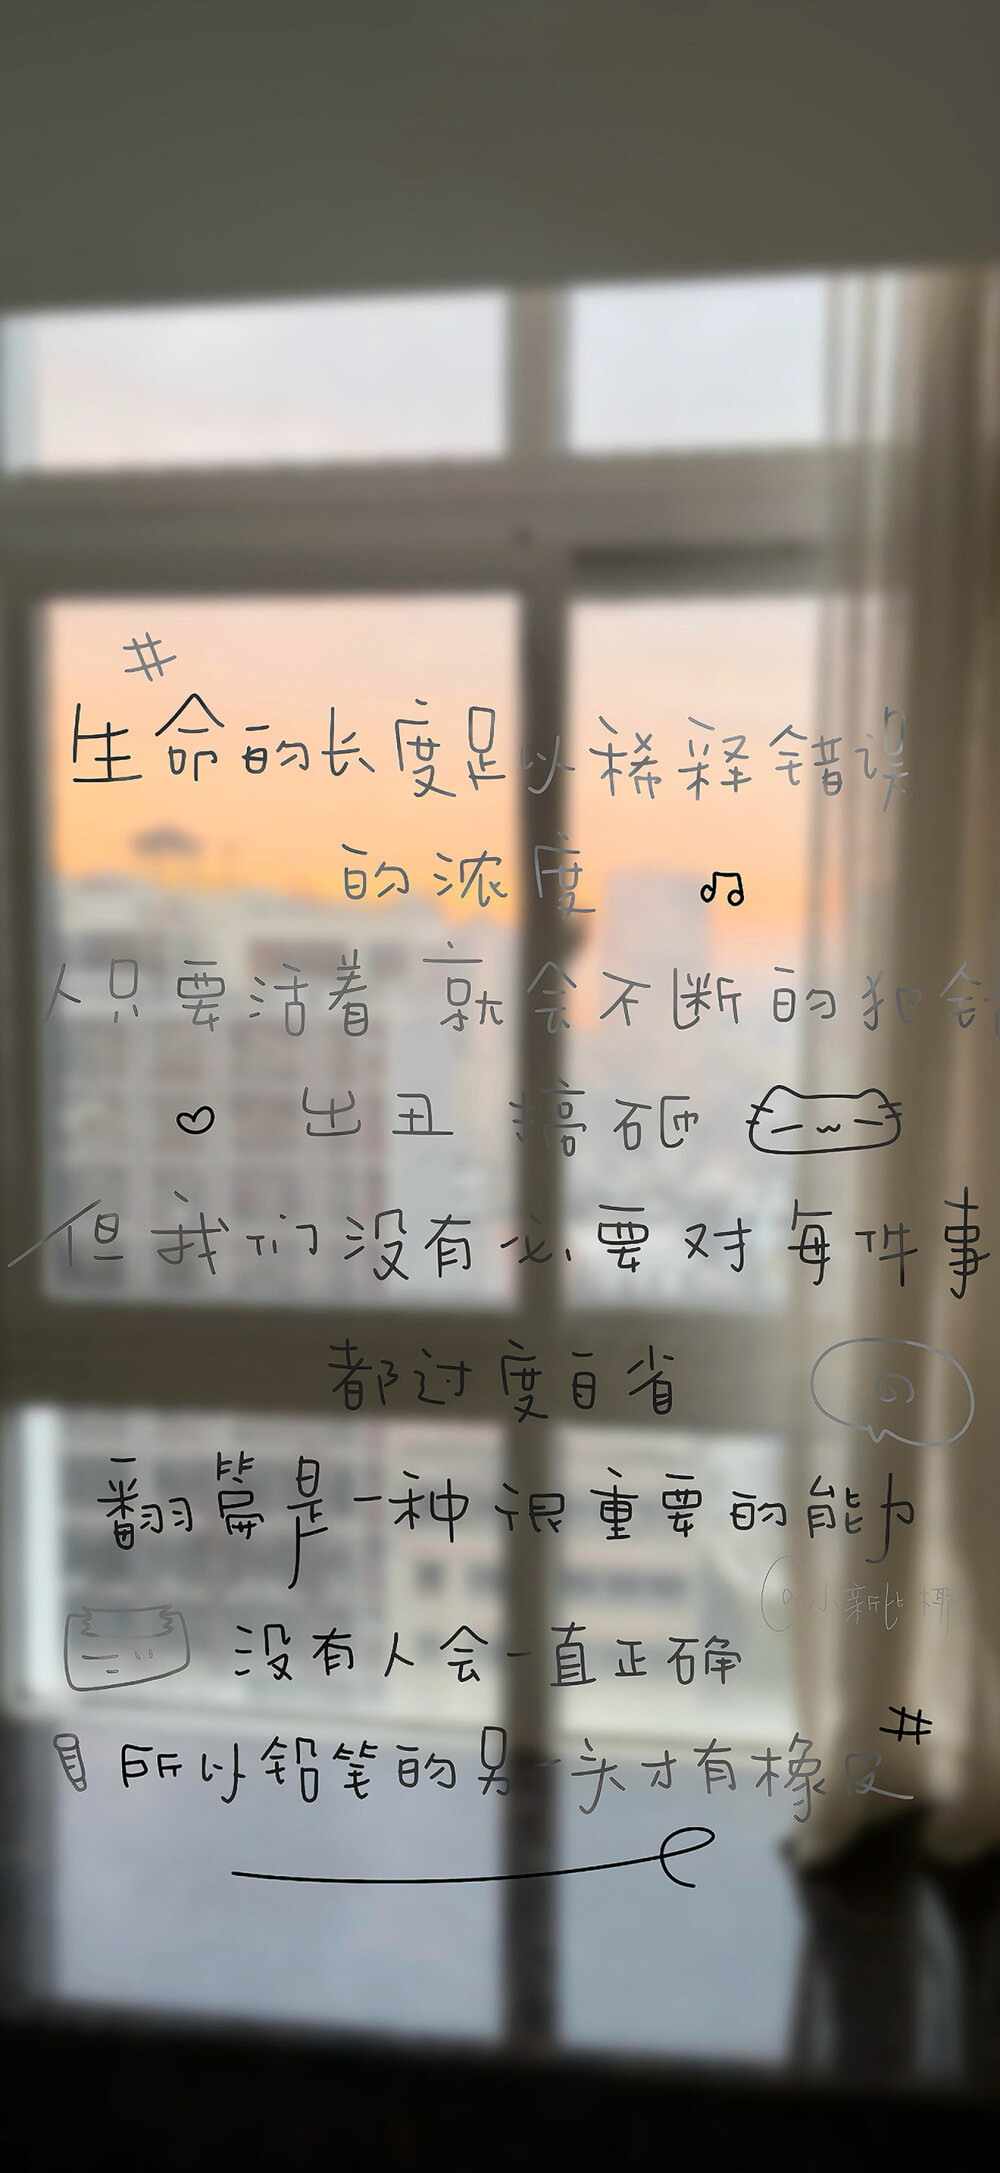 #
生命的长度足以稀释错误
的浓度
人只要活着 就会不断的犯错
出丑 搞砸
但我们没有必要对每件事
都过度自省
翻篇是一种很重要的能力
@小新比椰
没有人会一直正确
所以铅笔的另一头才有橡皮 #